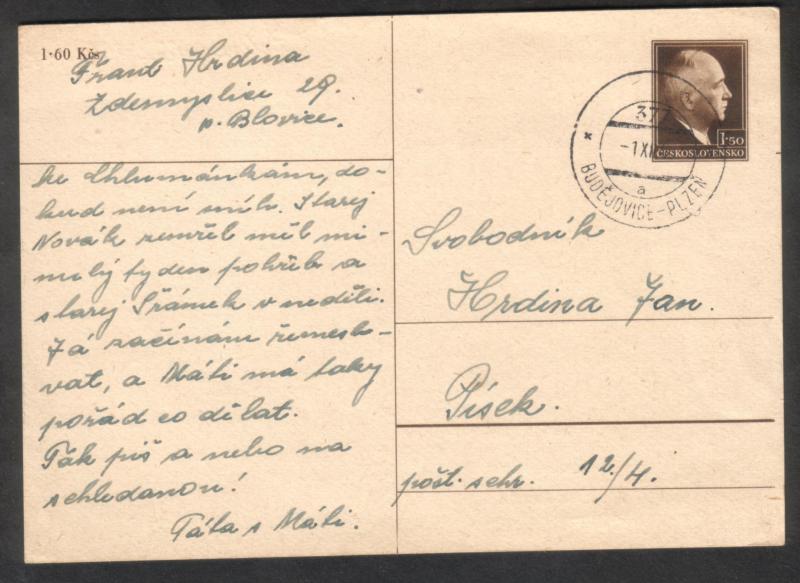 1·60 Kčs
Frant Hrdina
Zdemyslice 29.
p. Blovice.
ke Chlumánkám, do-
kud není sníh. Starej
Novák zemřel měl mi-
nulý tyden pohřeb a
starej Šrámek v neděli.
Já začínám řemesl-
vat, a Máti má taky
pořád co dělat.
Ták piš a nebo na
schledanou!
Táta s Máti.
1·50
ČESKOSLOVENSKO
377
-1 XI
a
BUDĚJOVICE-PLZEŇ
Svobodník
Hrdina Jan.
Písek.
pošt. schr. 12/4.